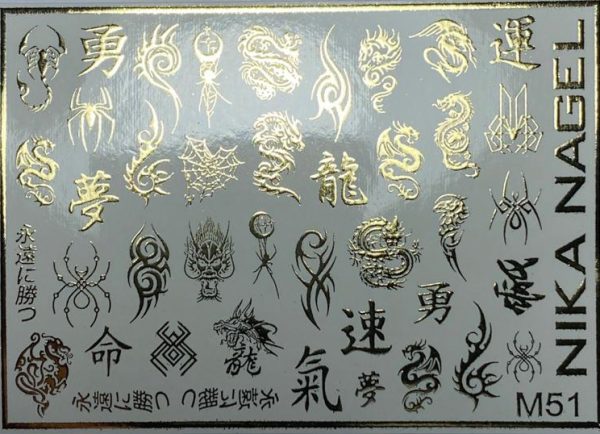 勇
運
夢
龍
NIKA NAGEL
永遠に勝つ
勇
速
命
龍
氣
夢
永遠に勝つ
永遠に勝つ
M51